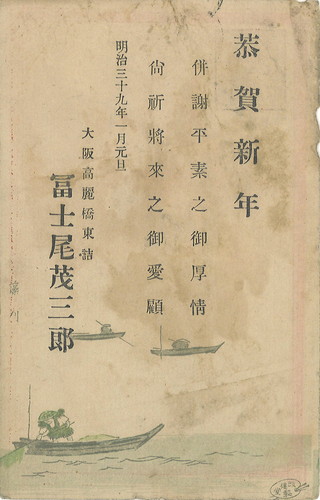 恭賀新年
併謝平素之御厚情
尙祈將來之御愛顧
明治三十九年一月元旦
大阪高麗橋東詰
冨士尾茂三郎